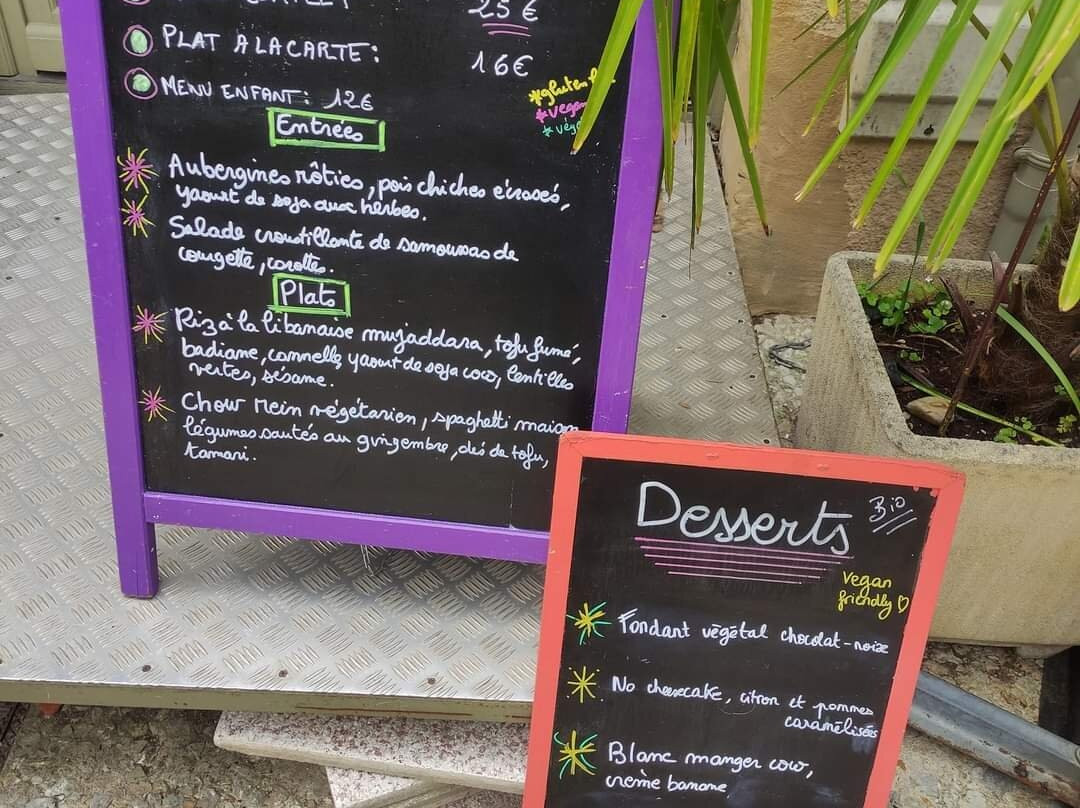 25€
PLAT A LA CARTE:
16€
MENU ENFANT: 12€
Entrées
Aubergines rôties, pois chiches écrasés,
yaourt de soja aux herbes.
Salade croustillante de samoussas de
courgette, carottes.
Plats
Riz à la libanaise mujaddara, tofu fumé,
badiane, cannelle, yaourt de soja coco, lentilles
vertes, sésame.
Chow Mein végétarien, spaghetti maison
légumes sautés au gingembre, dés de tofu,
tamari.
Desserts
Bio
Vegan
friendly
Fondant végétal chocolat-noix
No cheesecake, citron et pommes
caramélisées
Blanc manger coco,
crème banane